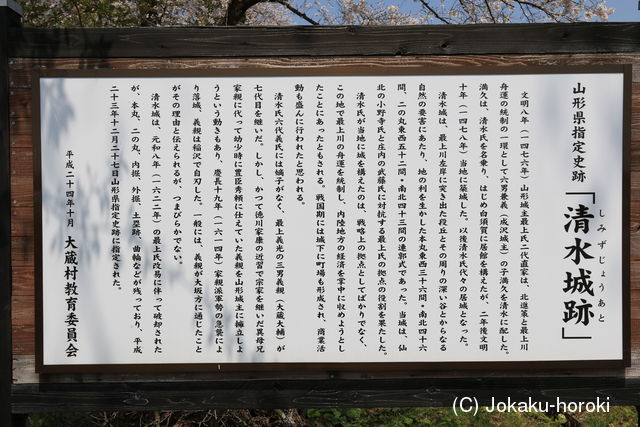 山形県指定史跡
「清水城跡」
しみずじょうあと
文明八年(一四七六年)山形城主最上氏二代直家は、北進策と最上川
舟運の統制の一環として六男兼義(成沢城主)の子満久を清水に配した。
満久は、清水氏を名乗り、はじめ白須賀に居館を構えたが、二年後文明
十年(一四七八年)当地に築城した。以後清水氏代々の居城となった。
清水城は、最上川左岸に突き出た段丘とその周りの深い谷とからなる
自然の要害にあたり、地の利を生かした本丸東西三十六間・南北四十六
間、二の丸東西五十二間・南北四十三間の連郭式であった。当城は、仙
北の小野寺氏と庄内の武藤氏に対抗する最上氏の拠点の役割を果した。
清水氏が当地に城を構えたのは、戦略上の拠点としてばかりでなく、
この地で最上川の舟運を統制し、内陸地方の経済を掌中に収めようとし
たことにあったともされる。戦国期には城下に町場も形成され、商業活
動も盛んに行われたと思われる。
清水氏六代義氏には嫡子がなく、最上義光の三男義親(大蔵大輔)が
七代目を継いだ。しかし、かつて徳川家康の近習で宗家を継いだ異母兄
家親に代って幼少時に豊臣秀頼に仕えていた義親を山形城主に擁立しよ
うという動きもあり、慶長十九年(一六一四年)家親派軍勢の急襲によ
り落城、義親は稲沢で自刃した。一般には、義親が大坂方に通じたこと
がその理由と伝えられるが、つまびらかでない。
清水城は、元和八年(一六二二年)の最上氏改易に伴って破却された
が、本丸、二の丸、内堀、外堀、土塁跡、曲輪などが残っており、平成
二十三年十二月二十七日山形県指定史跡に指定された。
平成二十四年十月 大蔵村教育委員会
(C) Jokaku-horoki